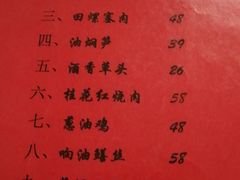 三、田螺塞肉 48
四、油焖笋 39
五、酒香草头 26
六、桂花红烧肉 58
七、葱油鸡 48
八、响油鳝丝 58